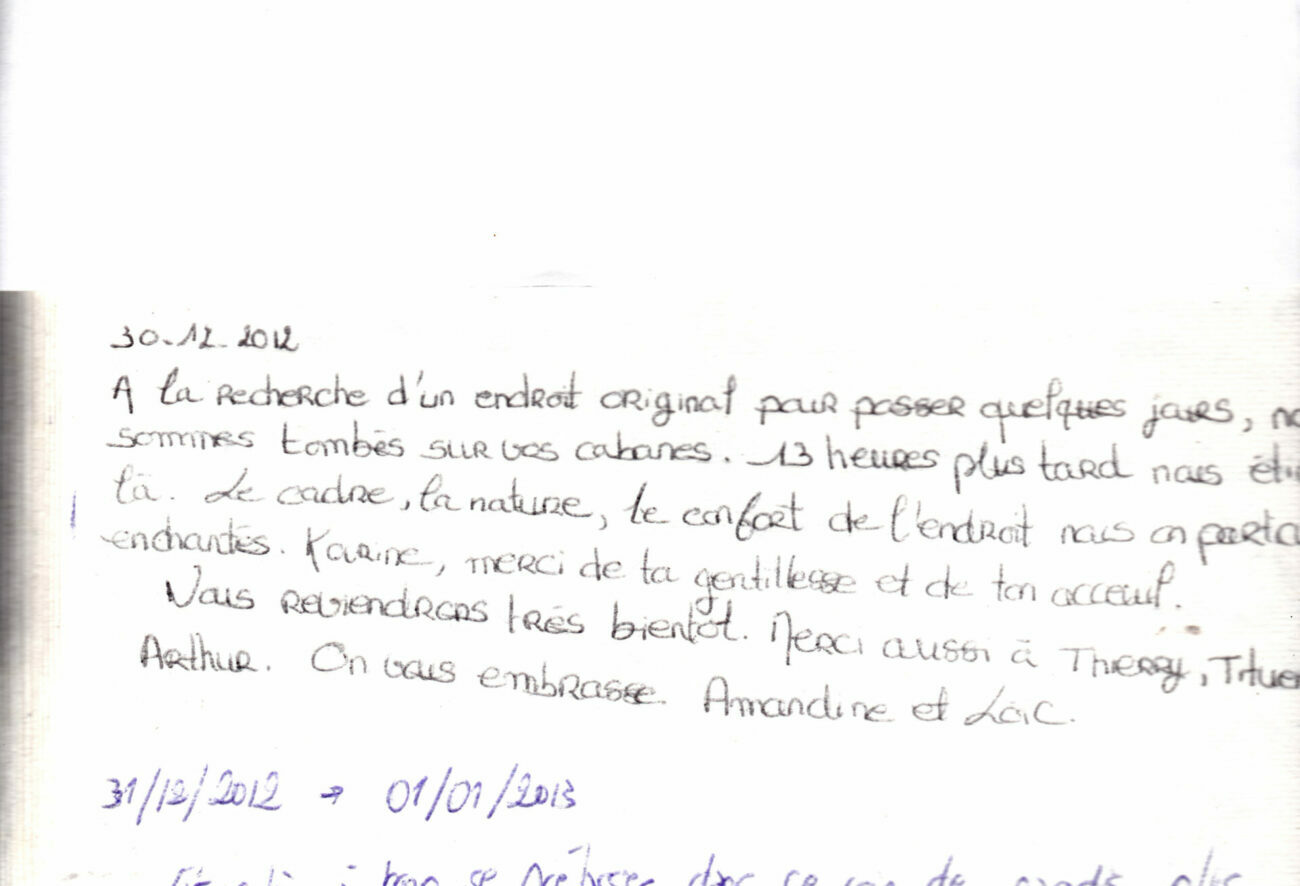 30-12-2012
A la recherche d'un endroit original pour passer quelques jours,
sommes tombés sur vos cabanes. 13 heures plus tard nous
là. Le cadre, la nature, le confort de l'endroit nous on
enchantés. Karine, merci de ta gentillesse et de ton acceuil.
Nous reviendrons très bientôt. Merci aussi à Thierry,
Arthur. On vous embrasse. Amandine et Loïc.
31/12/2012 → 01/01/2013